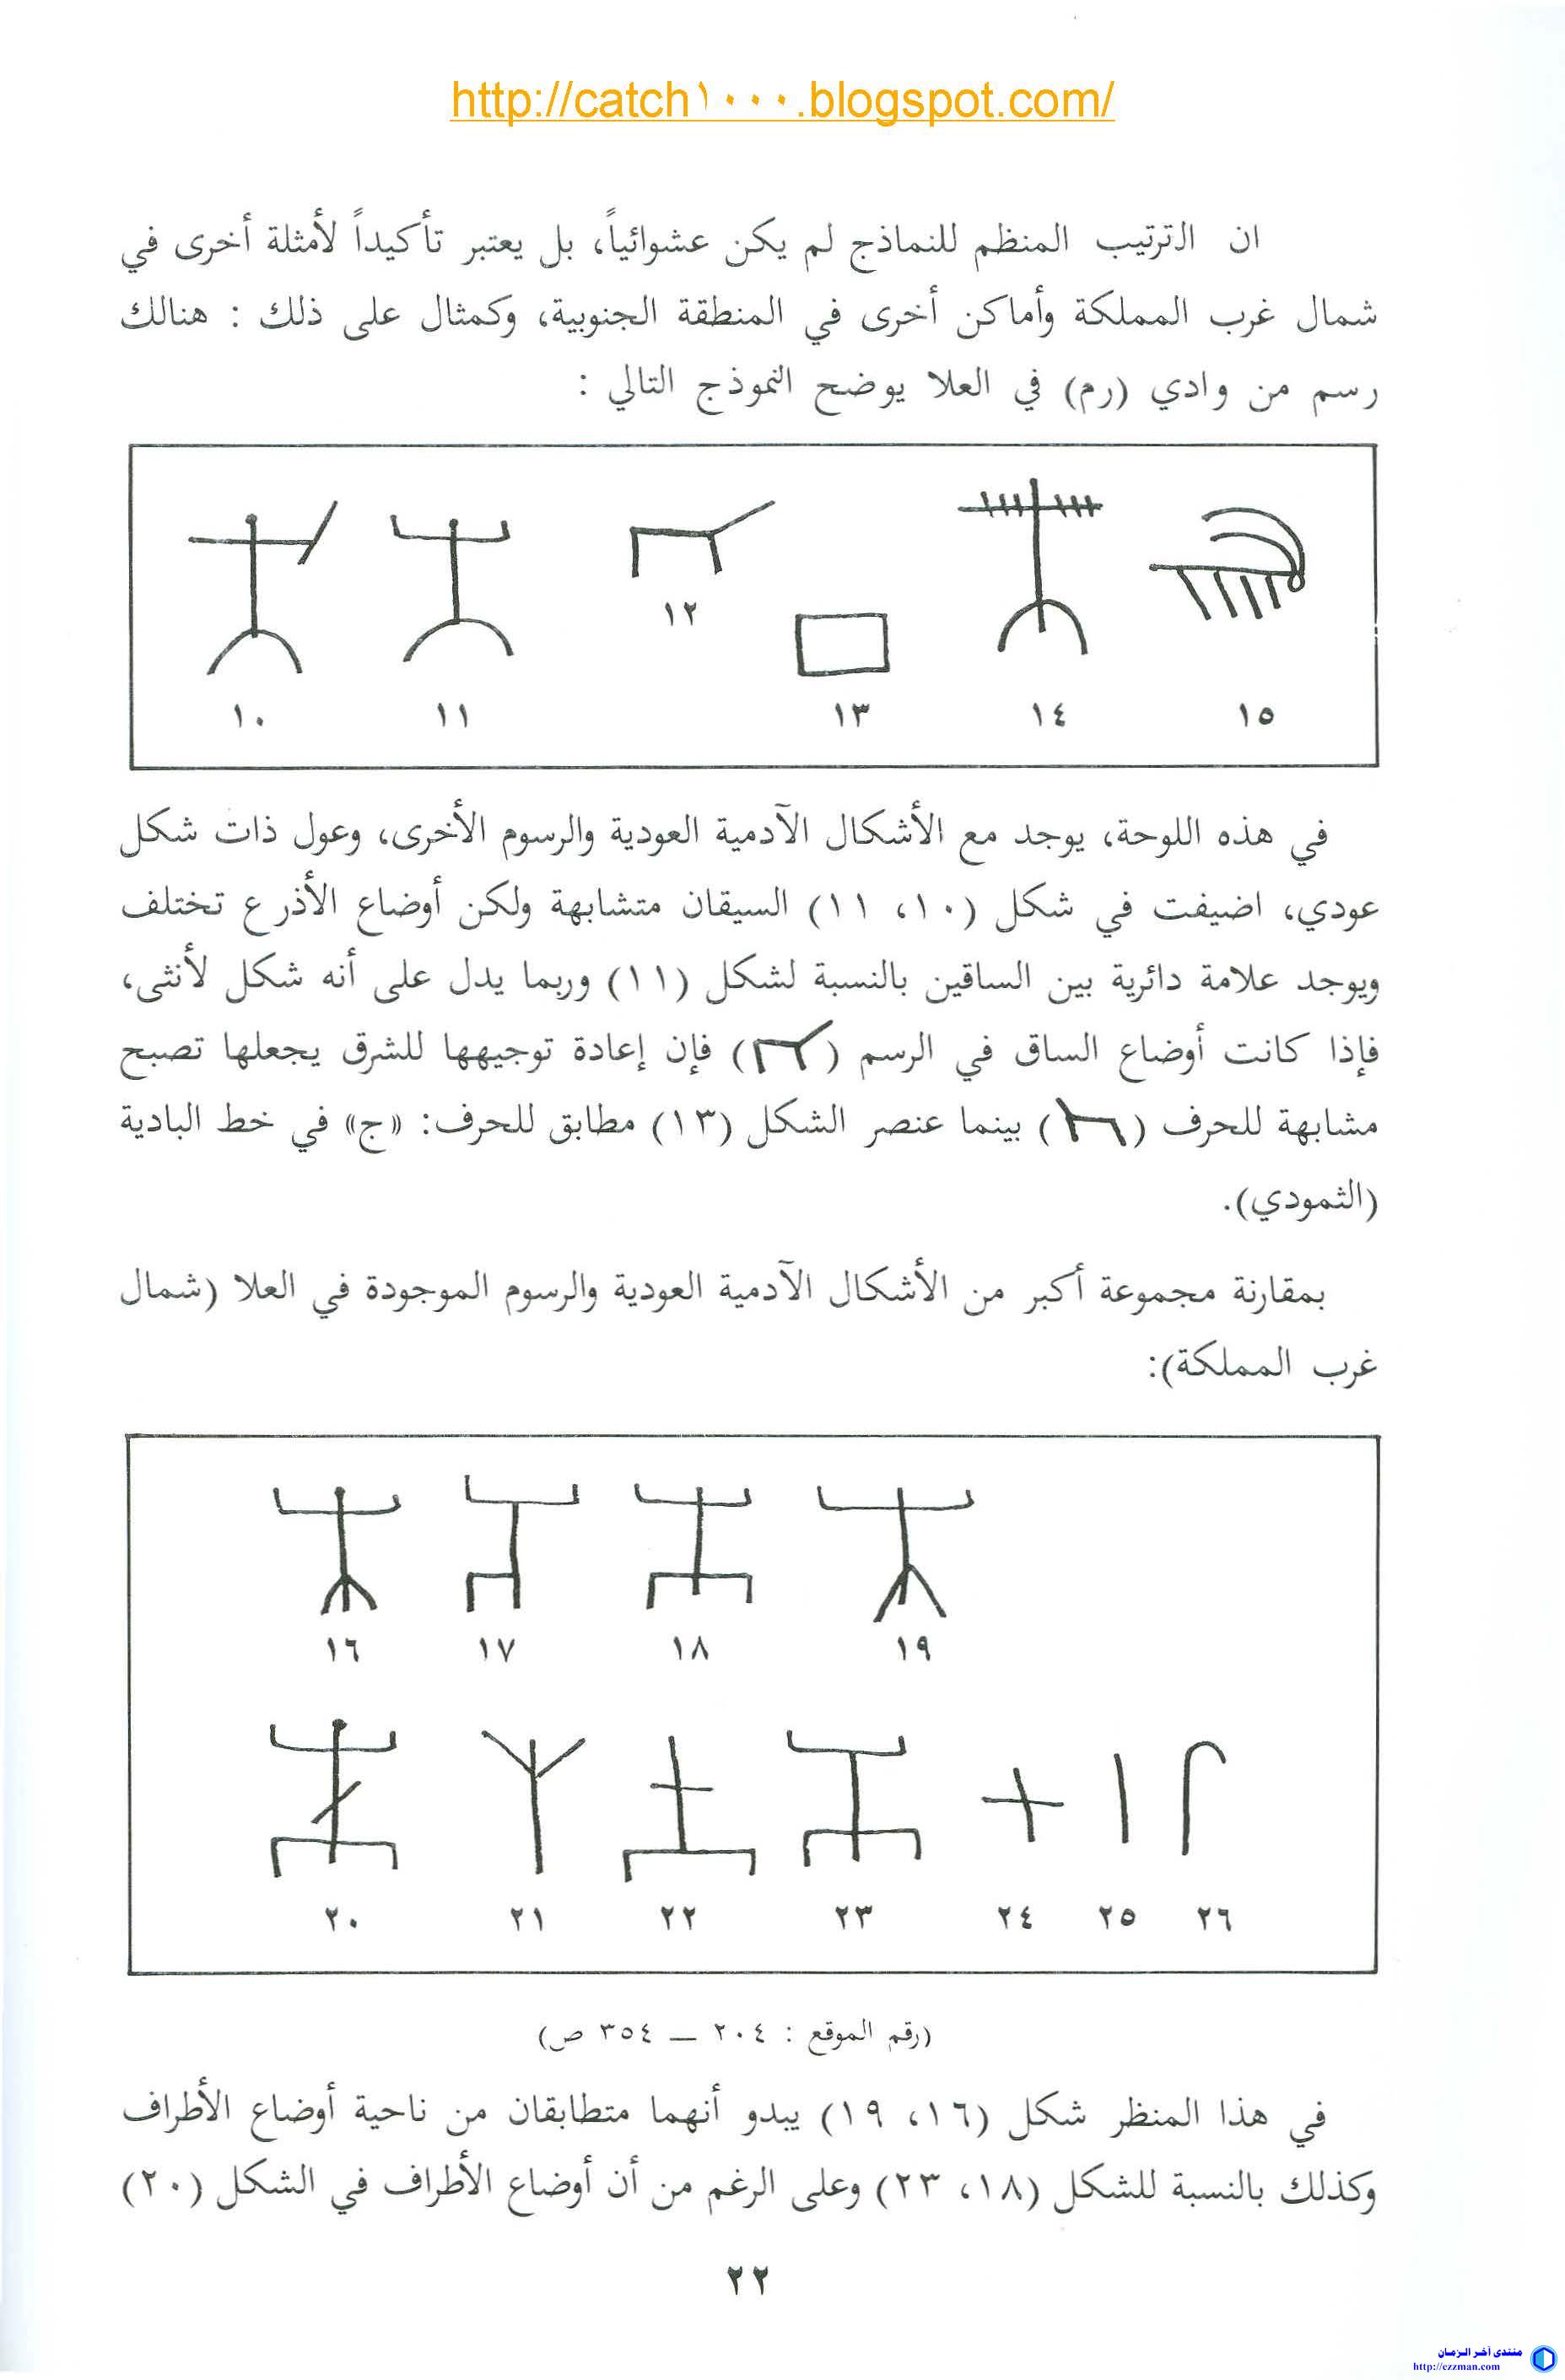 http://catch١٠٠٠.blogspot.com/
ان الترتيب المنظم للنماذج لم يكن عشوائياً، بل يعتبر تأكيداً لأمثلة أخرى في
شمال غرب المملكة وأماكن أخرى في المنطقة الجنوبية، وكمثال على ذلك : هنالك
رسم من وادي (رم) في العلا يوضح النموذج التالي :
١٢
١٠ ١١ ١٣ ١٤ ١٥
في هذه اللوحة، يوجد مع الأشكال الآدمية العودية والرسوم الأخرى، وعول ذات شكل
عودي، اضيفت في شكل (١٠، ١١) السيقان متشابهة ولكن أوضاع الأذرع تختلف
ويوجد علامة دائرية بين الساقين بالنسبة لشكل (١١) وربما يدل على أنه شكل لأنثى،
فإذا كانت أوضاع الساق في الرسم ( ) فإن إعادة توجيهها للشرق يجعلها تصبح
مشابهة للحرف ( ) بينما عنصر الشكل (١٣) مطابق للحرف: «ج» في خط البادية
(الثمودي).
بمقارنة مجموعة أكبر من الأشكال الآدمية العودية والرسوم الموجودة في العلا (شمال
غرب المملكة):
١٦ ١٧ ١٨ ١٩
٢٠ ٢١ ٢٢ ٢٣ ٢٤ ٢٥ ٢٦
(رقم الموقع : ٢٠٤ — ٣٥٤ ص)
في هذا المنظر شكل (١٦، ١٩) يبدو أنهما متطابقان من ناحية أوضاع الأطراف
وكذلك بالنسبة للشكل (١٨، ٢٣) وعلى الرغم من أن أوضاع الأطراف في الشكل (٢٠)
٢٢
منتدى آخر الزمان
http://ezzman.com